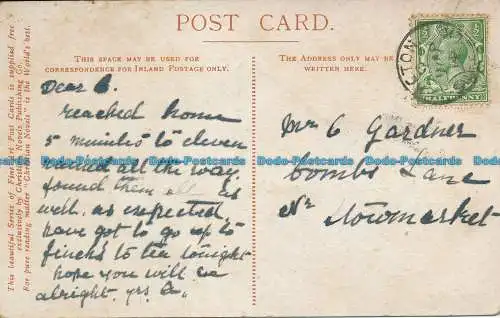 POST CARD.
THIS SPACE MAY BE USED FOR
CORRESPONDENCE FOR INLAND POSTAGE ONLY.
THE ADDRESS ONLY MAY BE
WRITTEN HERE.
This beautiful Series of Fine Art Post Cards is supplied free
exclusively by Christian Novels Publishing Co.
For pure reading matter "Christian Novels" is the World's best.
Dear
reached home
5 minuites to eleven
rained all the way
found them all as
well as expected,
have got to go up to
Finch's to tea tonight
hope you will be
alright. yrs A.
Mr C Gardner
Combs Lane
Nr Stowmarket
HALFPENNY
Dodo-Antiques